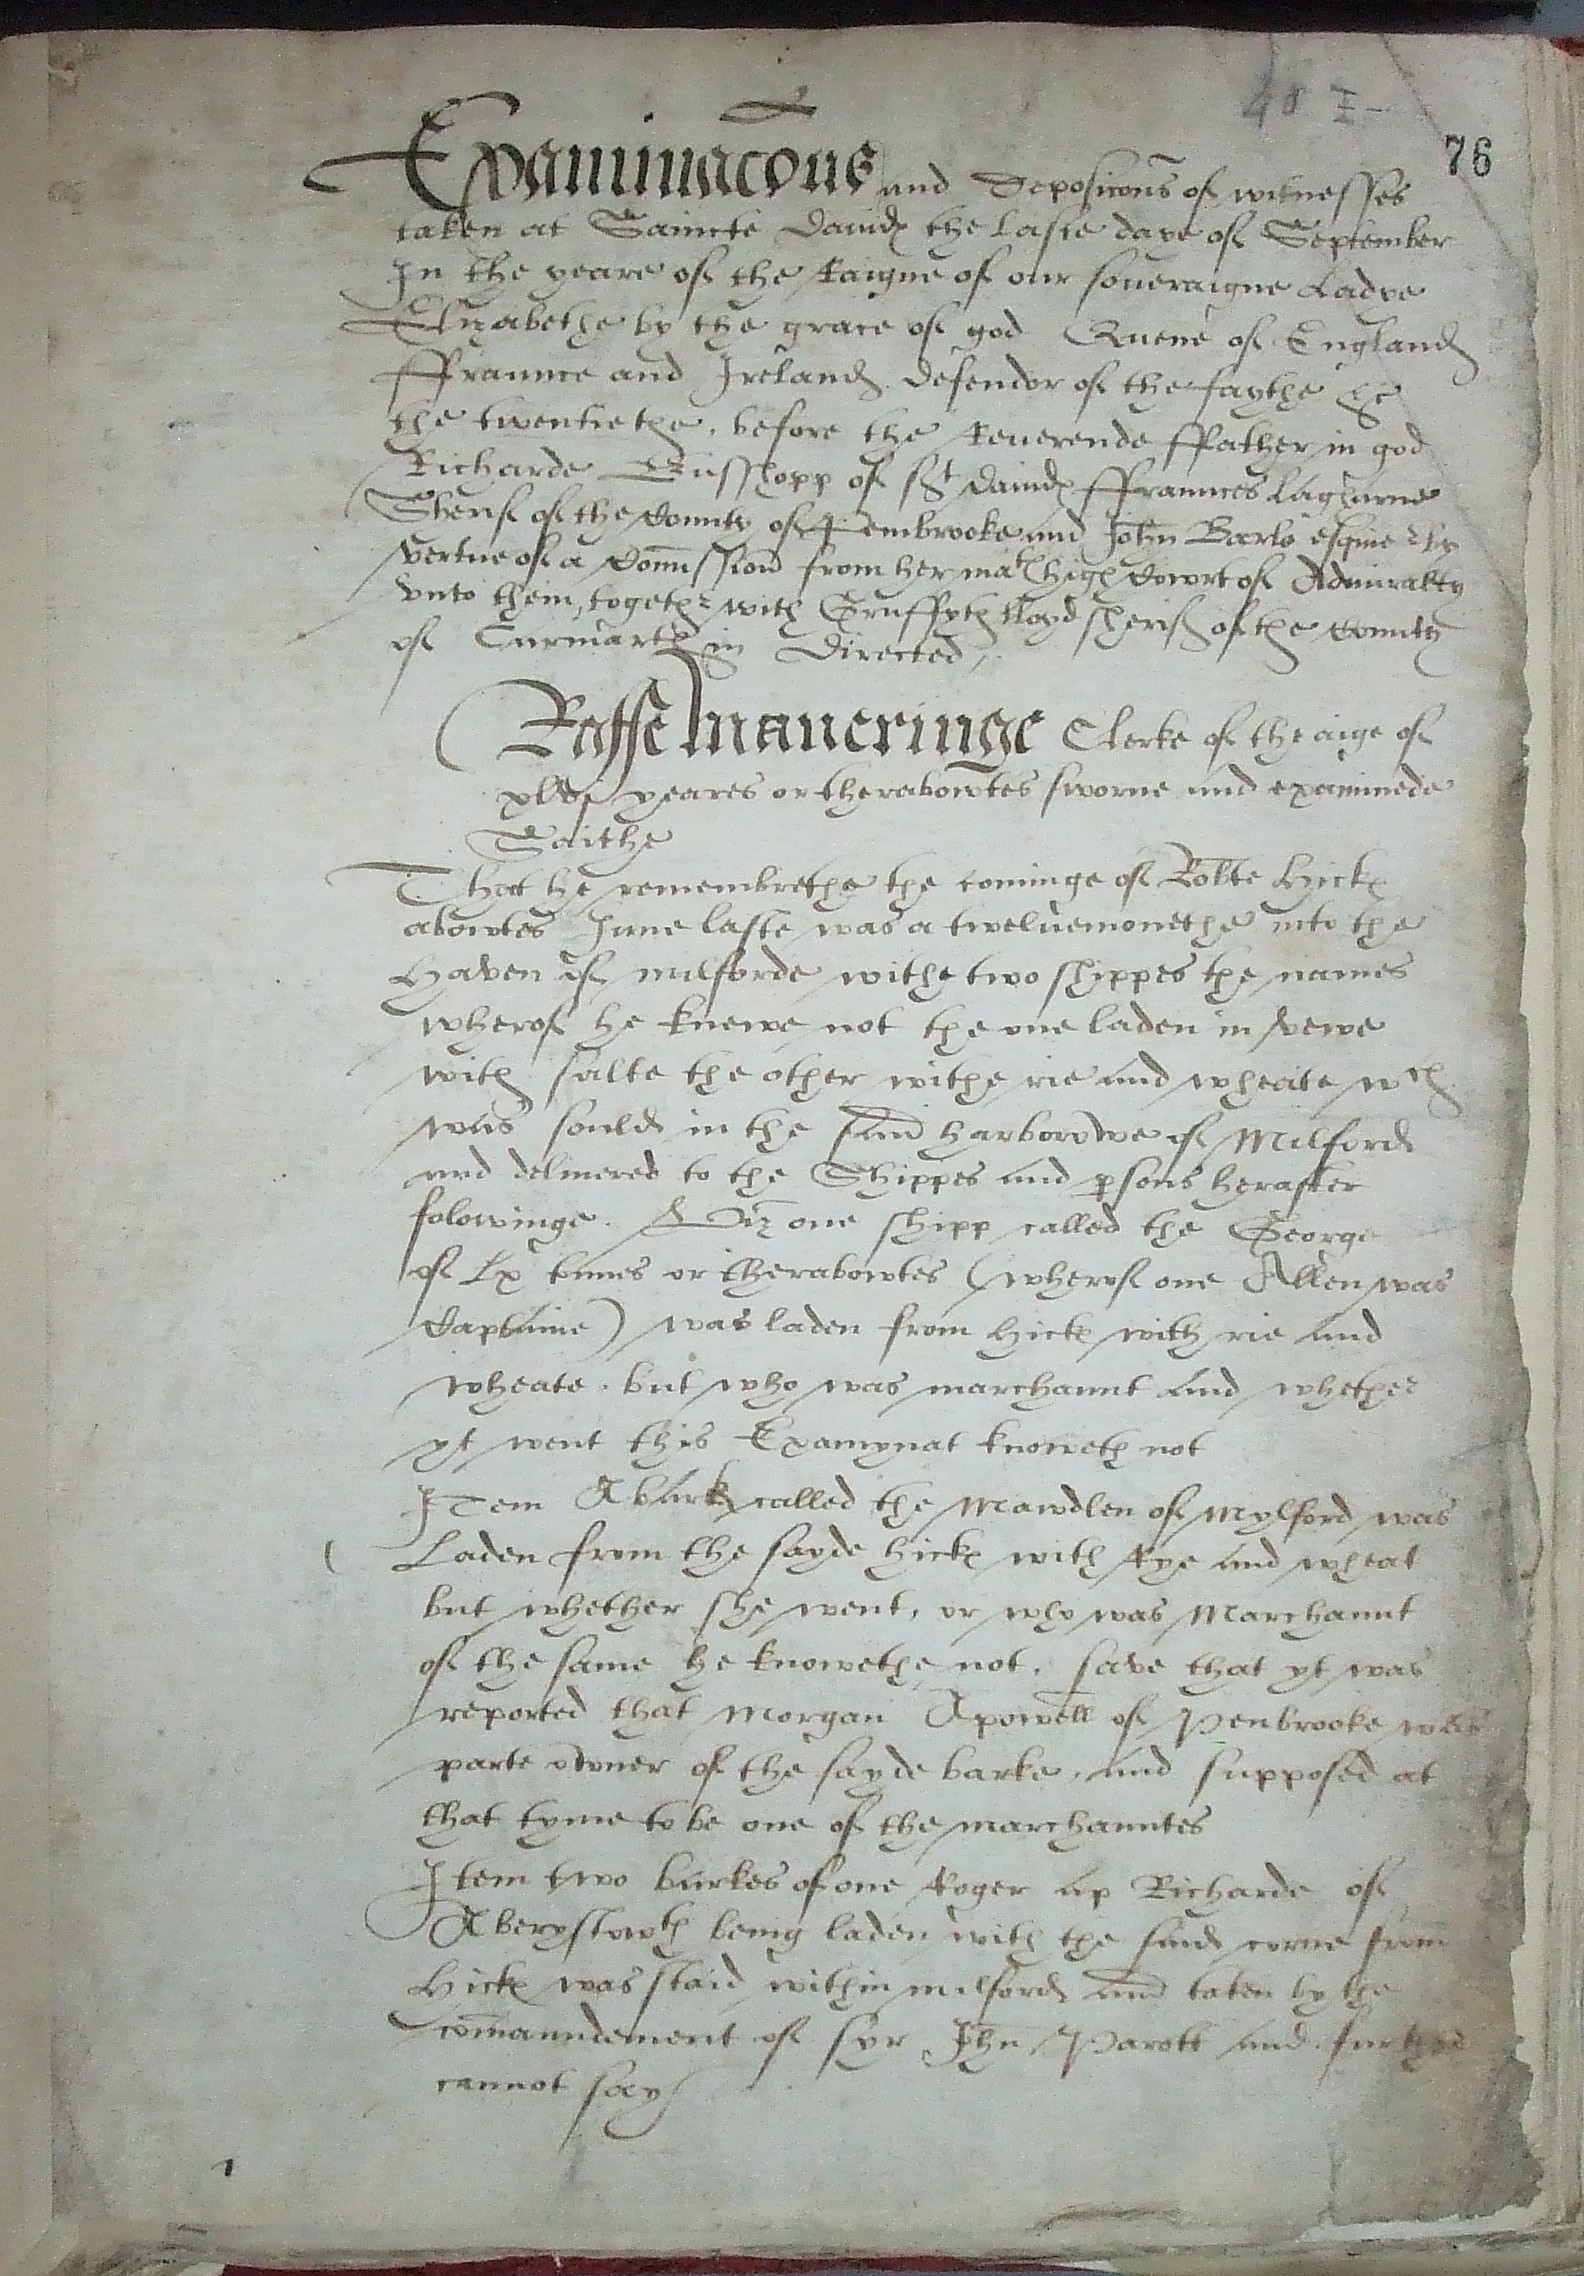 48 I -
76
Examinacons and Deposicons of witnesses
taken at Saincte Dauids the laste daye of September
In the yeare of the Raigne of our soueraigne Ladye
Elizabethe by the grace of god Quene of England
ffraunce and Ireland defendor of the faythe &c
the twentiethe, before the Reuerende ffather in god
Richarde Busshopp of st Dauids ffraunces Lagharne
Sherif of the County of Pembrooke and John Barlo esquire by
vertue of a Comission from her mats high Cowrt of Admiralty
vnto them, together with Gruffyth lloyd sherif of the County
of Carmarthin Directed,
Raffe Maneringe Clerke of the aige of
yeares or therabowtes sworne and examinede
Saithe
That he remembrethe the cominge of Robte Hicks
abowtes June laste was a tweluemonethe into the
Haven of milforde withe two shippes the names
wherof he knewe not the one laden in vewe
with salte the other withe rie and wheate wch
was sould in the said harborowe of Milford
and deliuered to the Shippes and psons herafter
folowinge. Viz one shipp called the George
of lx tunes or therabowtes (wherof one Allen was
Captaine) was laden from Hicks with rie and
wheate. but who was marchaunt and whether
yt went this Examynat knoweth not
Item A bark called the Mawdlen of Mylford was
Laden from the sayde hicks with Rye and wheat
but whether she went, or who was Marchaunt
of the same he knowethe not, save that yt was
reported that Morgan Apowell of Penbrooke was
parte owner of the sayde barke, and supposed at
that tyme to be one of the marchauntes
Item two barkes of one Roger ap Richarde of
Aberystowth being laden with the said corne from
Hicks was staid within milford and taken by the
comaundement of syr Jhn Parott and further
cannot say
1